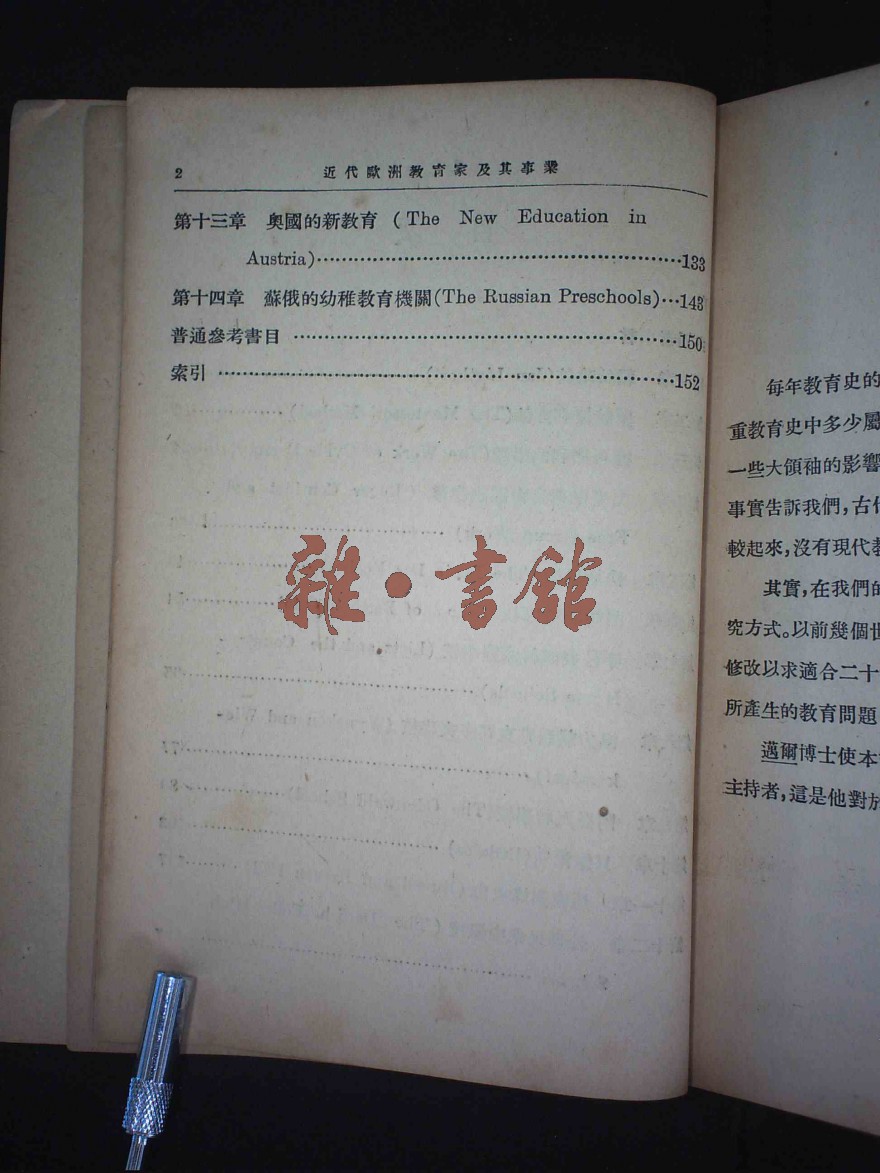 2 近代歐洲教育家及其事業
第十三章 奧國的新教育 (The New Education in
Austria)⋯⋯⋯⋯⋯⋯⋯⋯⋯⋯⋯⋯⋯133
第十四章 蘇俄的幼稚教育機關(The Russian Preschools)⋯143
普通參考書目 ⋯⋯⋯⋯⋯⋯⋯⋯⋯⋯⋯⋯⋯150
索引 ⋯⋯⋯⋯⋯⋯⋯⋯⋯⋯⋯⋯⋯⋯⋯152
雜·書館
每年教育史的
重教育史中多少屬
一些大領袖的影響
事實告訴我們,古代
較起來,沒有現代教
其實,在我們的
究方式。以前幾個世
修改以求適合二十
所產生的教育問題
邁爾博士使本
主持者,這是他對於